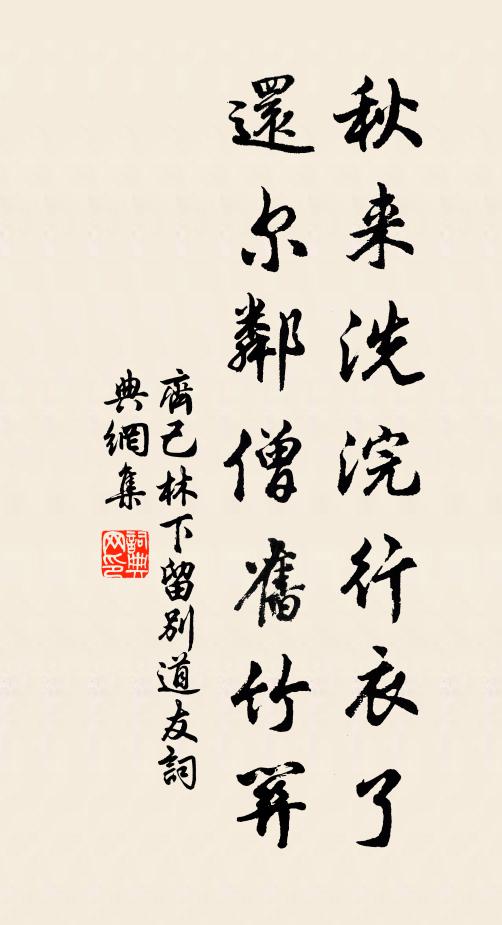 秋来洗浣行衣了
還尔鄰僧舊竹房
齊己林下留別道友詞
典網集
詞典
网印